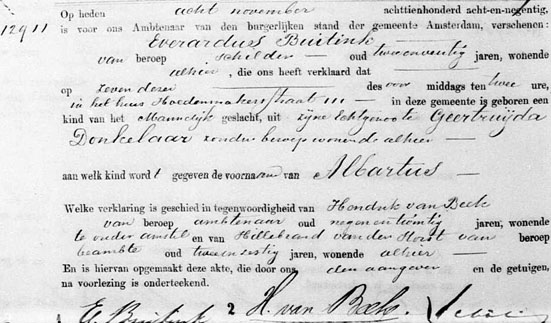 Op heden acht november achttienhonderd acht-en-negentig,
12911 is voor ons Ambtenaar van den burgerlijken stand der gemeente Amsterdam, verschenen:
Everardus Buitink
van beroep schilder oud tweeentwintig jaren, wonende
alhier, die ons heeft verklaard dat
op zeven dezer des voor middags ten twee ure,
in het huis Hoedenmakersstraat 111 in deze gemeente is geboren een
kind van het Mannelijk geslacht, uit zijne Echtgenoote Geertruijda
Donkelaar zonder beroep wonende alhier
aan welk kind wordt gegeven de voornaam van Albartus
Welke verklaring is geschied in tegenwoordigheid van Hendrik van Beek
van beroep ambtenaar oud negenentwintig jaren, wonende
te ouder amstel en van Hillebrand van der Horst van beroep
beambte oud tweeendertig jaren, wonende alhier
En is hiervan opgemaakt deze akte, die door ons den aangever en de getuigen,
na voorlezing is onderteekend.
E. Buitink 2 H. van Beek